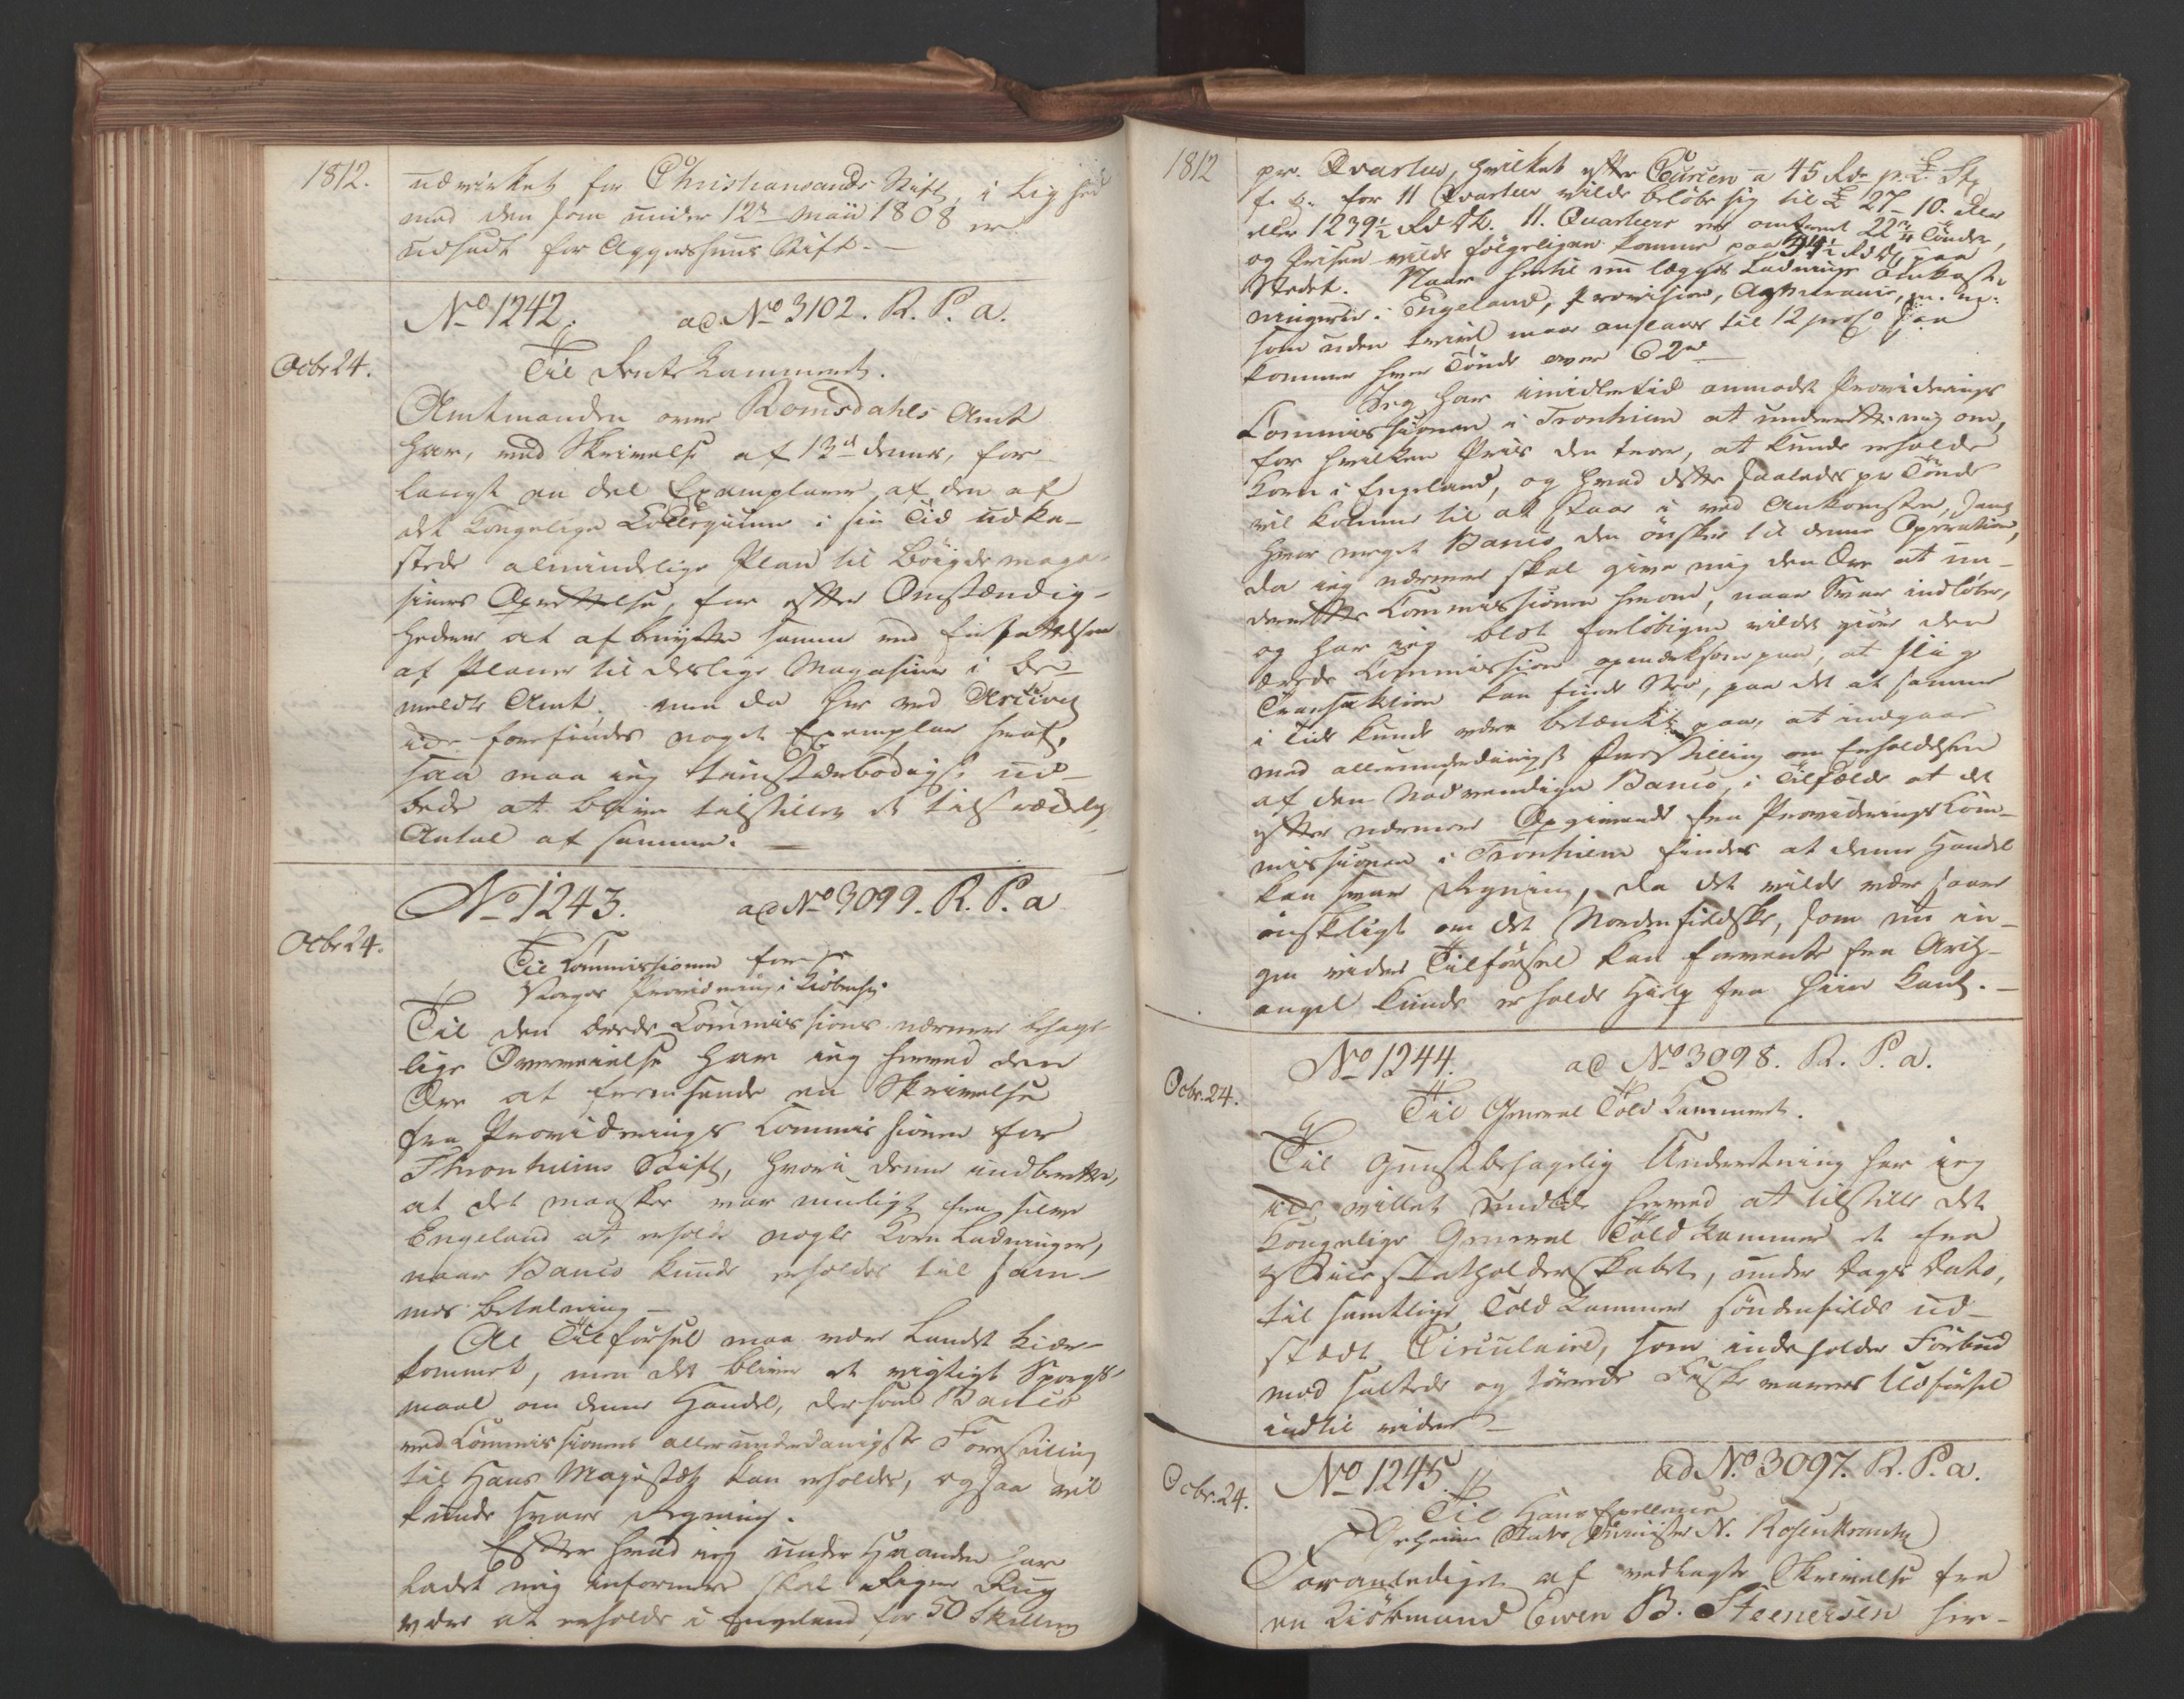 1812.
udvirket for Christiansands Stift, i Lighed
med den som under 12te Maii 1808 er
udstedt for Aggershuus Stift.
No 1242. ad No 3102. R. P. a.
Octbr 24.
Til Rente Kammeret.
Amtmanden over Romsdahls Amt
har, med Skrivelse af 13de dennes, for-
langt en deel Exemplarer af den af
det Kongelige Collegium i sin Tid udka-
stede almindelige Plan til Bøigdemaga-
siners Oprettelse, for efter Omstændig-
hederne at afbenytte samme ved Forfattelsen
af Planer til deslige Magasiner i be-
meldte Amt; men da her ved Archivet
icke forefindes noget Exemplar heraf,
saa maa ieg tienstærbødigst ud-
bede at blive tilstillet et tilstrækkelig
Antal af samme.
No 1243. ad No 3099. R. P. a
Octbr 24.
Til Commissionen for
Norges Providering i Kiøbenhv.
Til den ærede Commissions nærmere behage-
lige Overveielse har ieg herved den
Ære at fremsende en Skrivelse
fra Providerings Commissionen for
Thronhiems Stift, hvori denne indberetter,
at det maaskee var muligt fra selve
Engeland at erholde nogle Korn Ladninger,
naar Banco kunde erholdes til sam-
mes betalning
Al Tilførsel maa være Landet kier-
kommet, men det bliver et vigtigt Spørgs-
maal om denne Handel, dersom Banco
ved Commissionens allerunderdanigste Forestilling
til Hans Majestæt kan erholdes, ogsaa vil
kunde svare Regning.
Efter hvad ieg under Haanden har
ladet mig informere skal Rigær Rug
være at erholde i Engeland for 50 Skilling
1812
pr. Qvarteer, hvilket efter Coursen a 45 Rdr pr. £ St.
f. x. for 11 Qvarteer vilde beløbe sig til £ 27-10. eller
eller 1239½ Rd DC. 11. Quarteers er omtrent 22¾ Tønder,
og Prisen vilde følgeligen komme paa 54½ Rd DC paa
Stedet. Naar hertil nu lægges Ladnings Omkost-
ningerne i Engeland, Provision, Assurance, m. m.
som uden tvivl maae anslaaes til 12 proCo saa
kommer hver Tønde over 62
Jeg har imidlertid anmodet Providerings
Commissionen i Tronhiem at underrette mig om,
for hvilken Priis den troer, at kunde erholde
Korn i Engeland, og hvad dette saaledes pr Tønde
vil komme til at staae i ved Ankomsten, samt
hvor meget Banco den ønsker til denne Operation,
da ieg nærmere skal give mig den Ære at un-
derrette Commissionen herom, naar Svar indløber,
og har ieg blot foreløbigen vildet giøre den
ærede Commission opmærksom paa, at slig
Transaktion kan finde Sted, paa det at samme
i Tide kunde være betænkt paa, at indgaae
med allerunderdanigst Forestilling om Erholdelsen
af den nødvendige Banco, i Tilfælde at det
efter nærmere Opgivende fra Providerings Com-
missionen i Tronhiem findes at denne Handel
kan svare Regning, da det vilde være saare
ønskeligt om det Nordenfieldske, som nu in-
gen videre Tilførsel kan forvente fra Arch-
angel kunde erholde Hielp fra hiin Kant.
No 1244. ad No 3098. R. P. a.
Octbr. 24.
Til General Told Kammeret.
Til gunstbehagelig Underretning har ieg
icke villet undlade herved at tilstille det
Kongelige General Told Kammer et fra
Vice Statholderskabet, under Dags Dato,
til samtlige Told Kammere søndenfields ud-
stædt Circulaire, som indeholder Forbud
mod saltede og tørrede Fiske varers Udførsel
indtil videre
No 1245. ad No. 3097. R. P. a.
Octbr. 24.
Til Hans Excellence
Geheime Stats Minister N. Rosenkrantz
Foranlediget af vedlagte Skrivelse fra
en Kiøbmand Ewen B. Steenersen her-